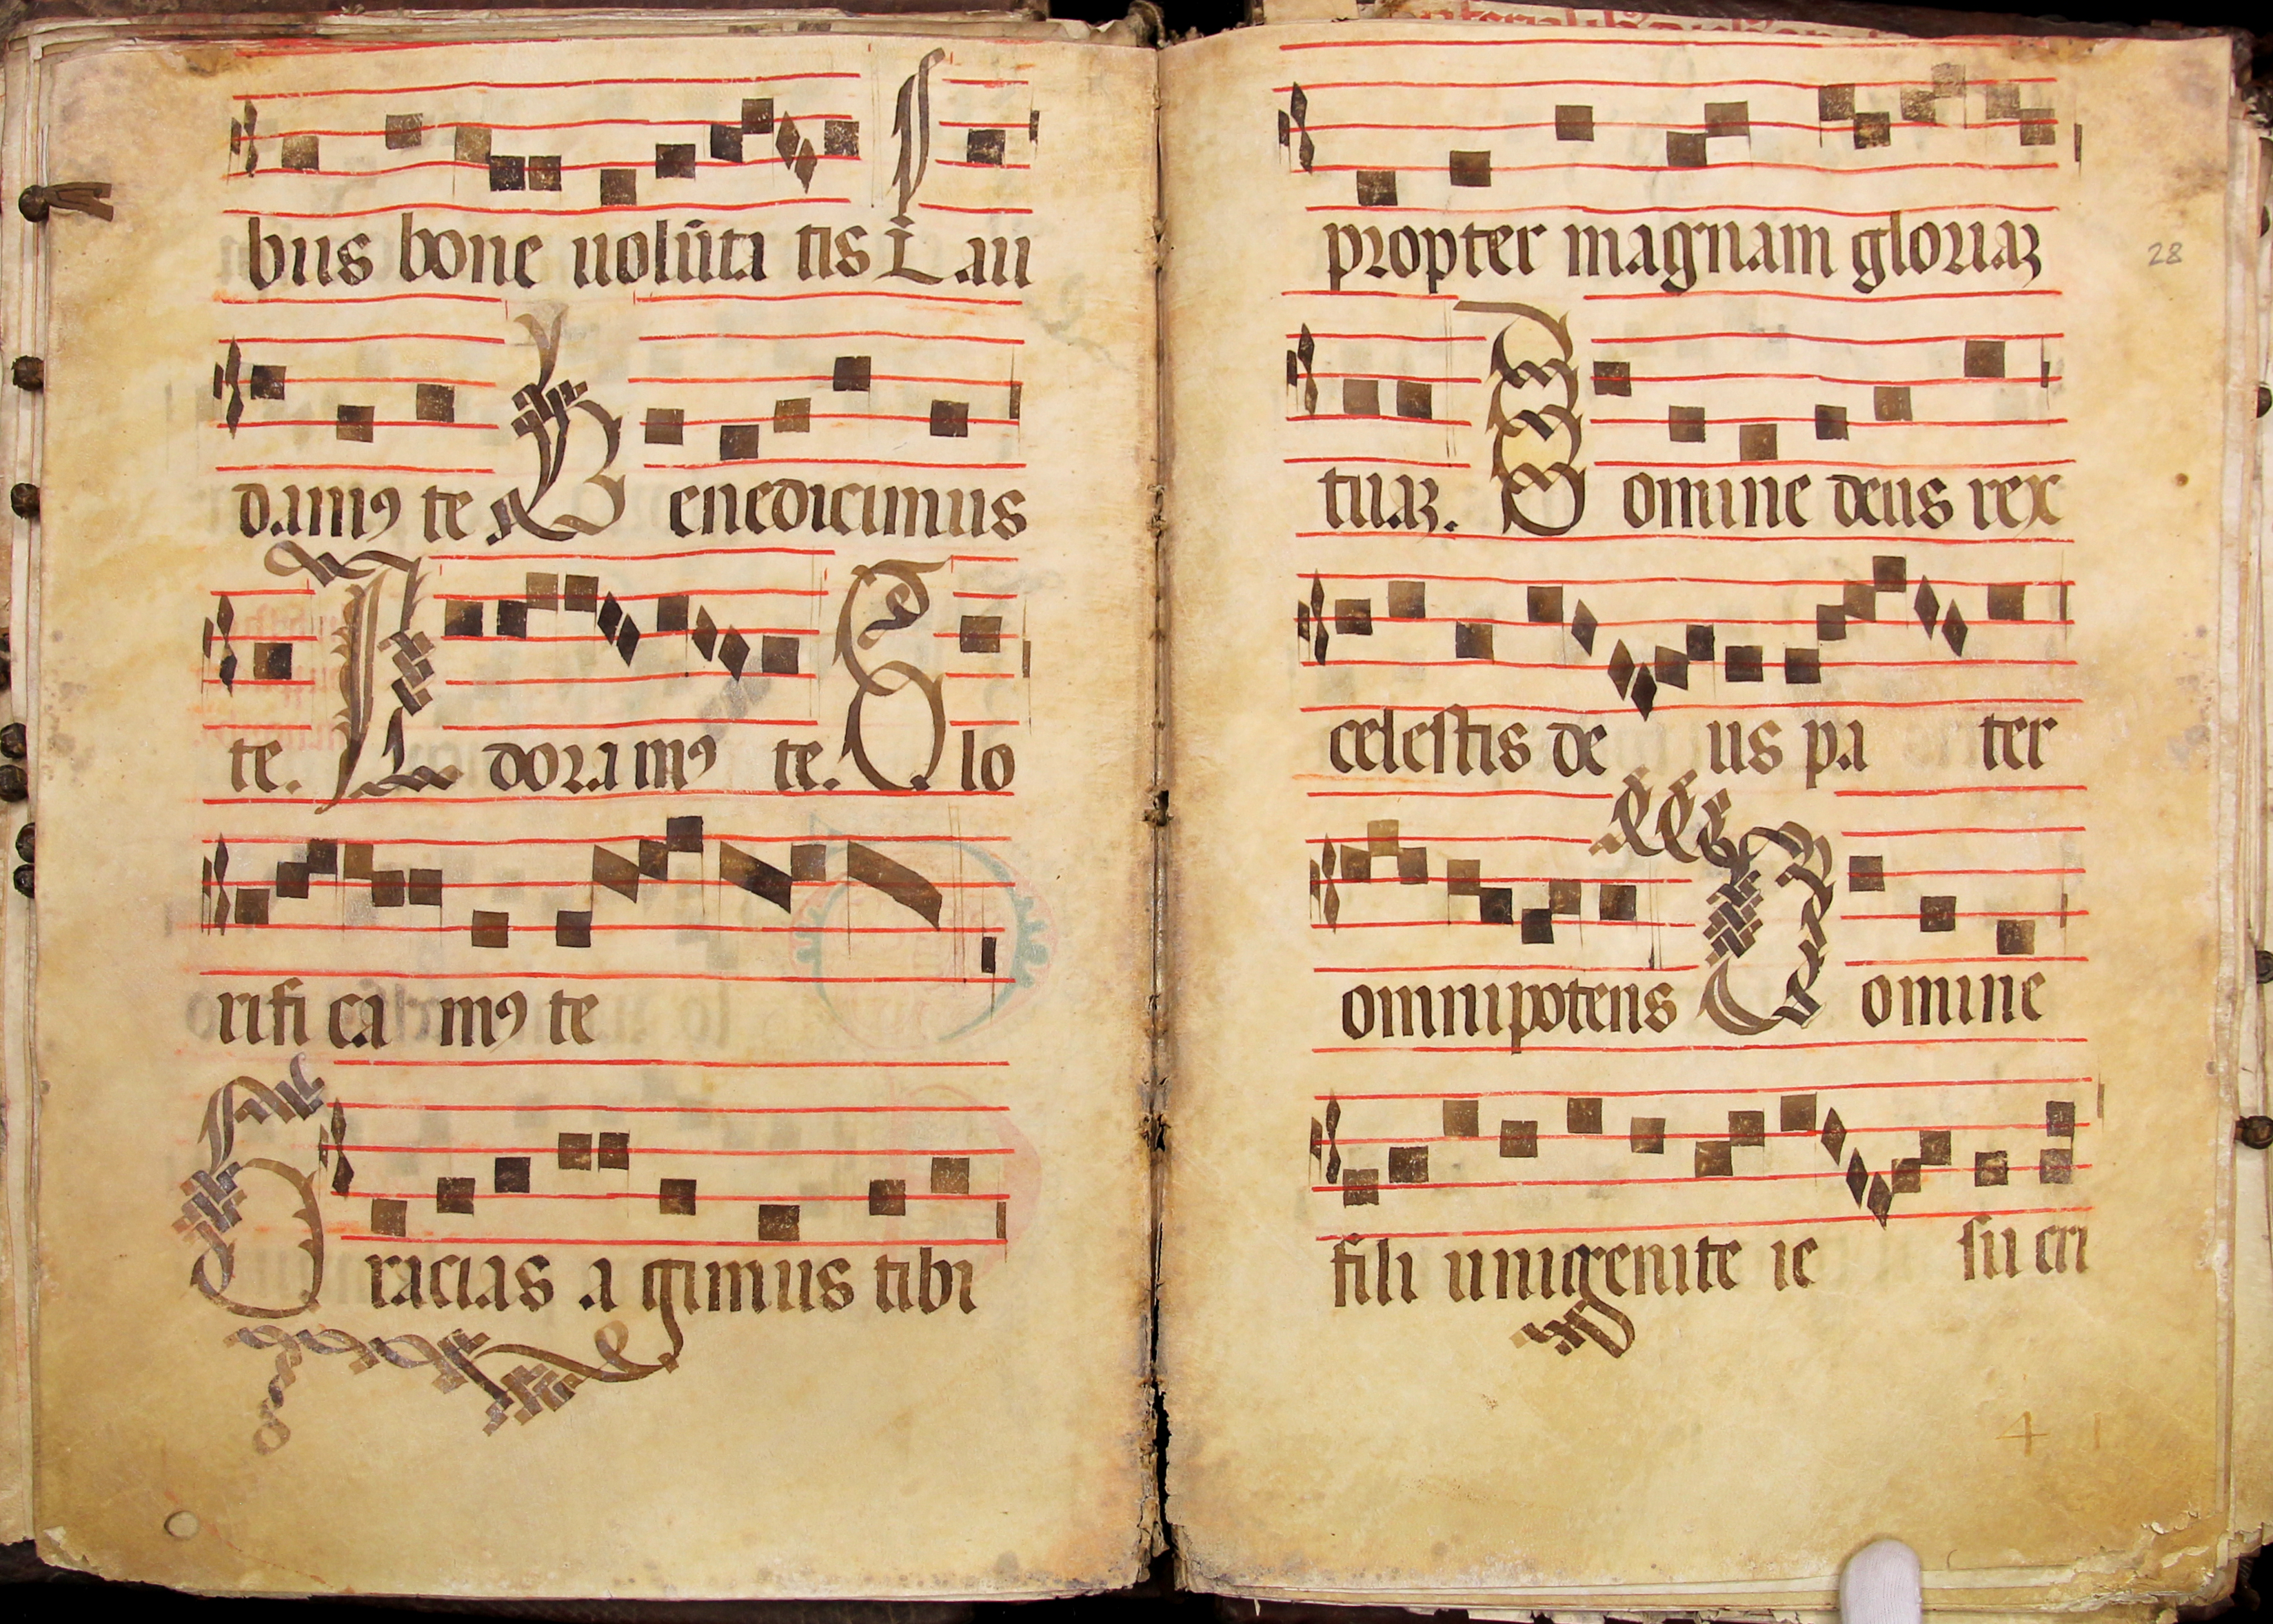 bus bone uolũta tis Lau
damꝯ te Benedicimus
te. Adoramꝯ te. Glo
rifi ca mꝯ te
Gracias a gimus tibi
28
propter magnam gloriaʒ
tuaʒ. Domine deus rex
celeſtis de us pa ter
omnipotens Domine
fili unigenite ie ſu cri
4 1